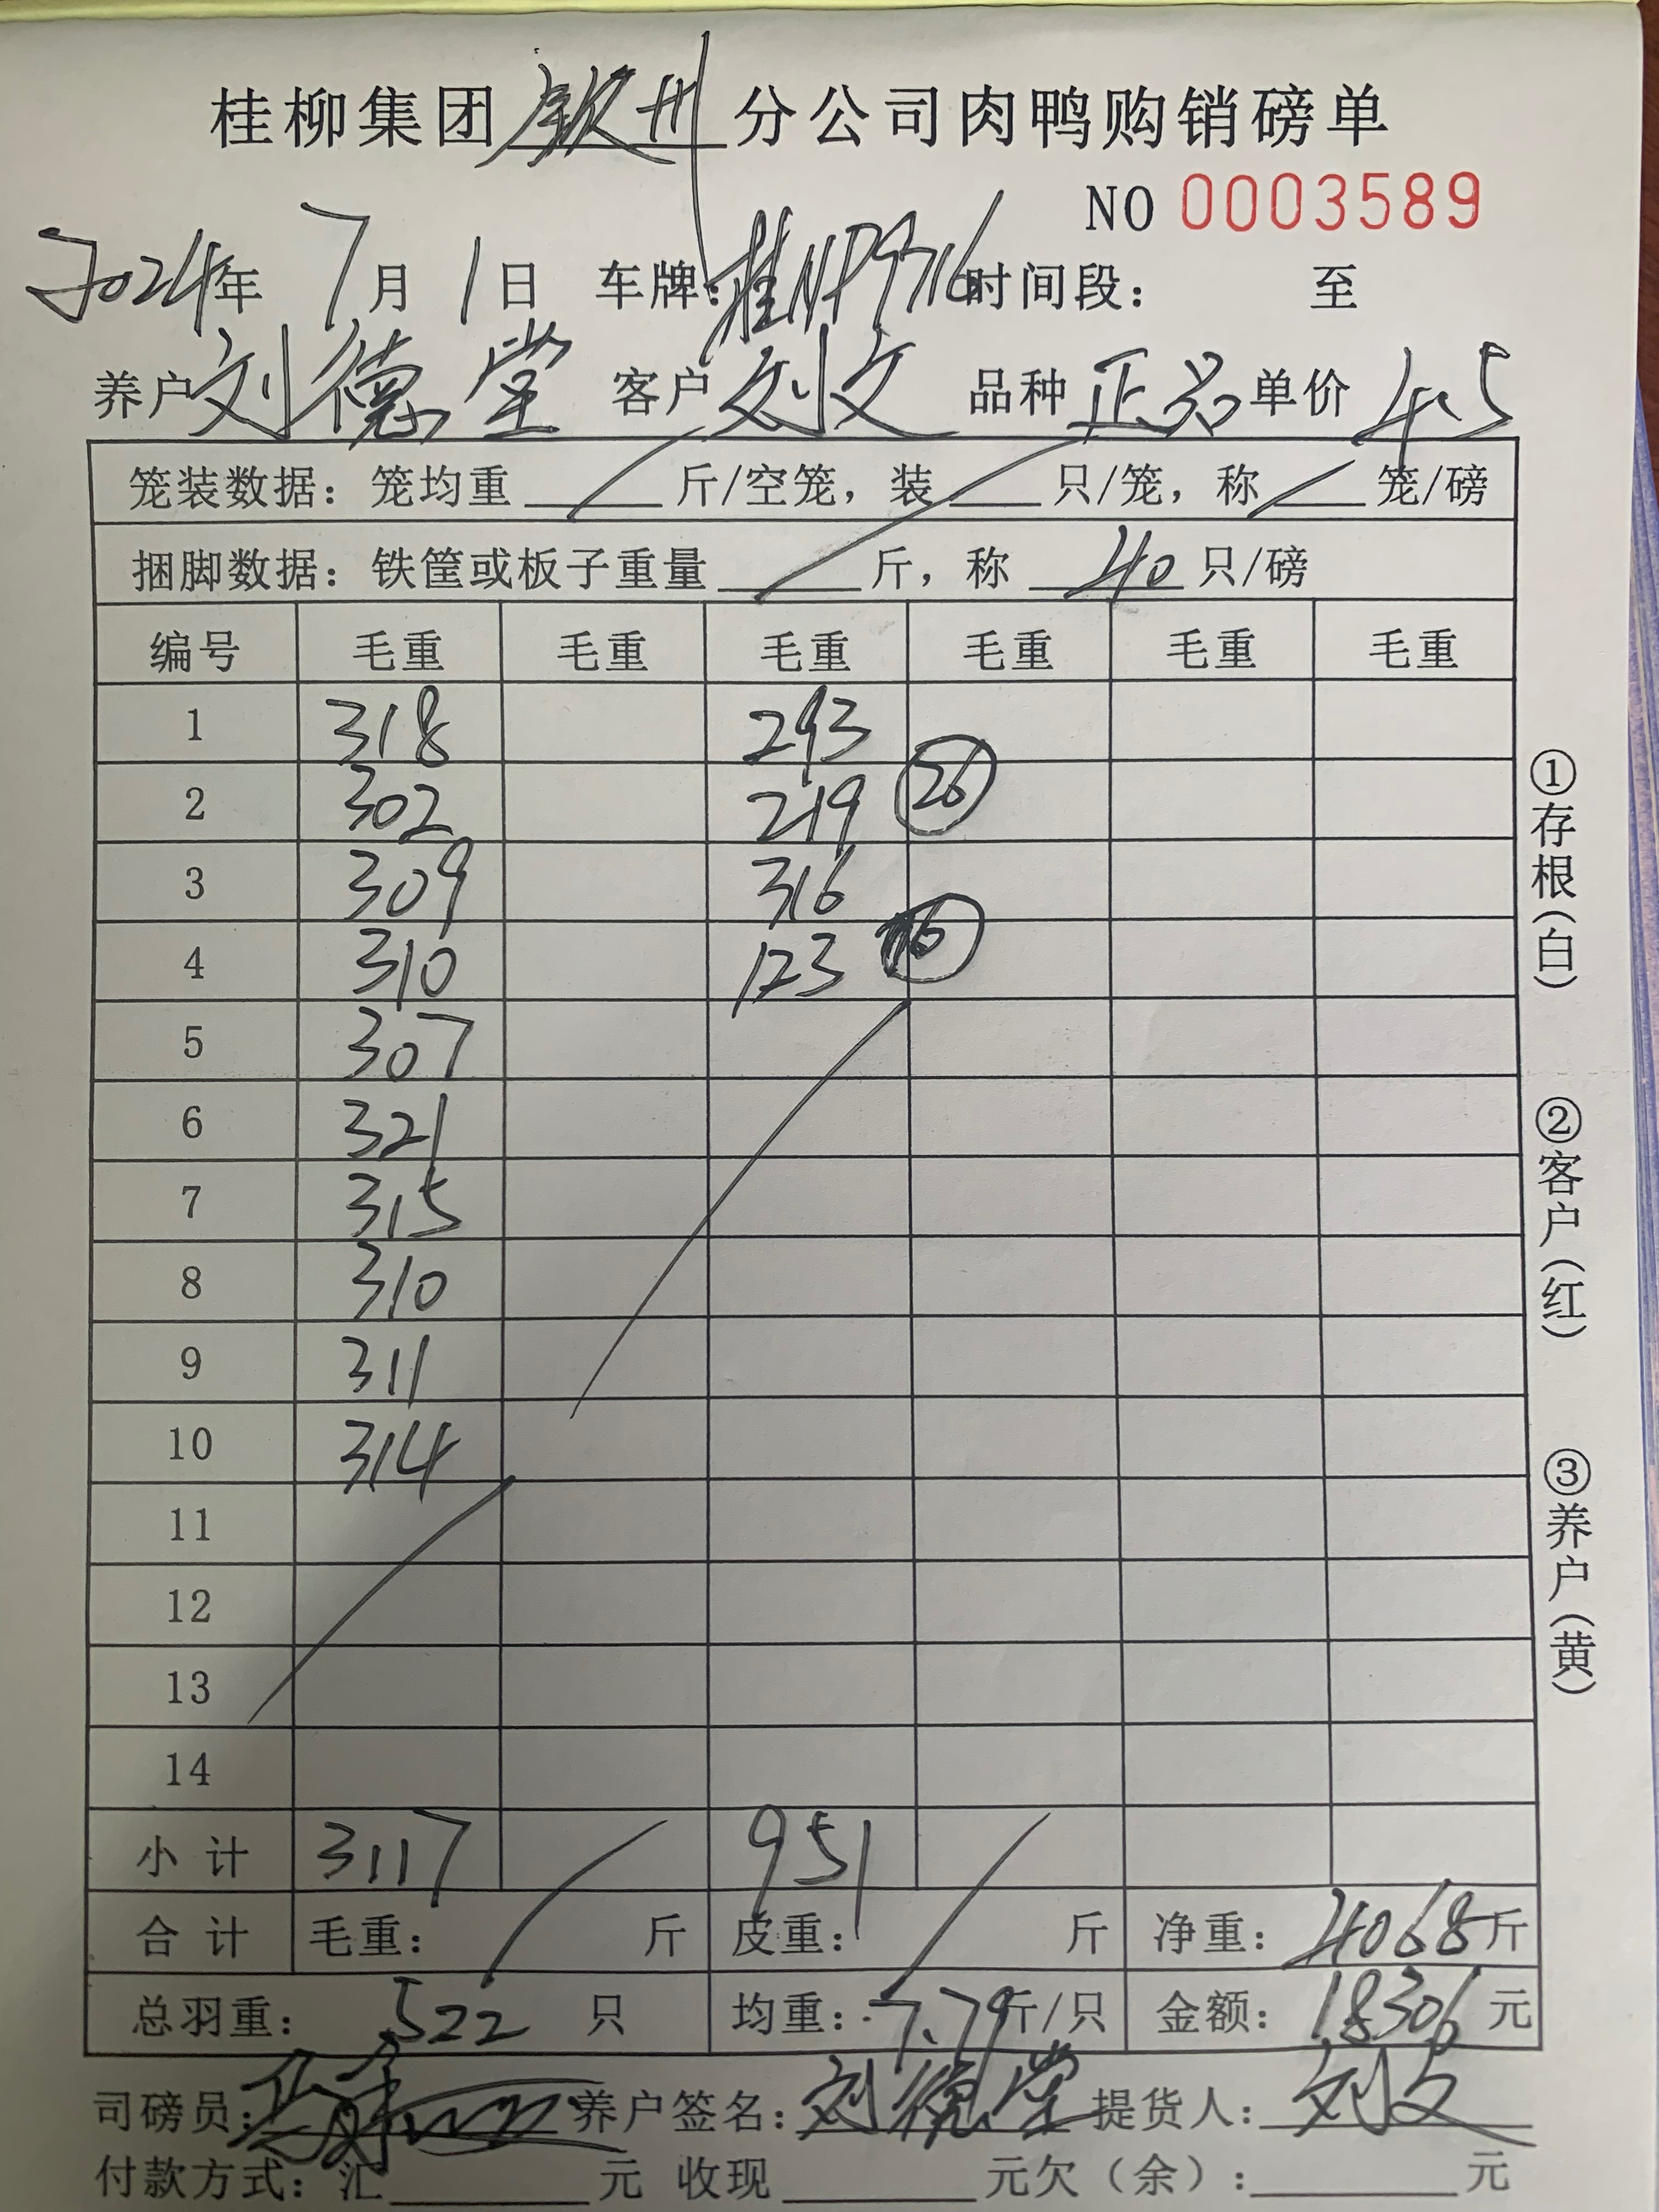 桂柳集团钦州分公司肉鸭购销磅单
NO 0003589
2024年 7月 1日 车牌:桂NP9716 时间段: 至
养户 刘德堂 客户 刘文 品种 正品 单价 4.5
笼装数据: 笼均重 / 斤/空笼, 装 / 只/笼, 称 / 笼/磅
捆脚数据: 铁筐或板子重量 / 斤, 称 40 只/磅
编号 毛重 毛重 毛重 毛重 毛重 毛重
1 318 293
2 302 219 26
3 309 316
4 310 123 16
5 307
6 321
7 315
8 310
9 311
10 314
11
12
13
14
小计 3117 951
合计 毛重: 斤 皮重: 斤 净重: 4068斤
总羽重: 522 只 均重: 7.79斤/只 金额: 18306元
司磅员: 养户签名: 刘德堂 提货人: 刘文
付款方式: 汇 元 收现 元欠(余): 元
①存根(白)
②客户(红)
③养户(黄)